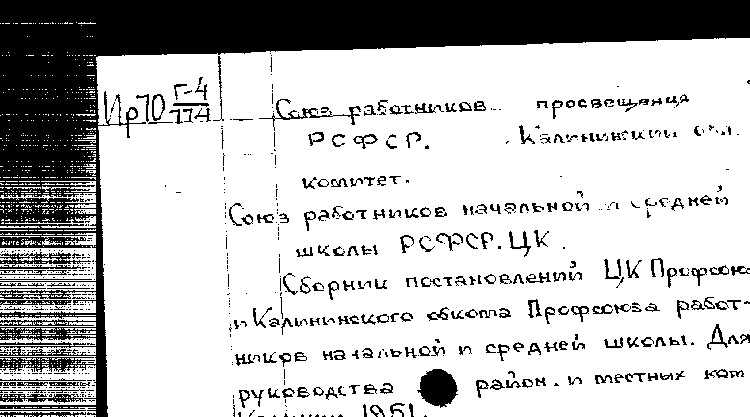 Ир70 Г-4/774
Союз работников просвещения
РСФСР. Калининский обл.
комитет.
Союз работников начальной и средней
школы РСФСР. ЦК.
Сборник постановлений ЦК Профсоюз
и Калининского обкома Профсоюза работ-
ников начальной и средней школы. Для
руководства район. и местных ком
1951.